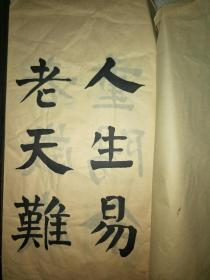 人生易
老天難